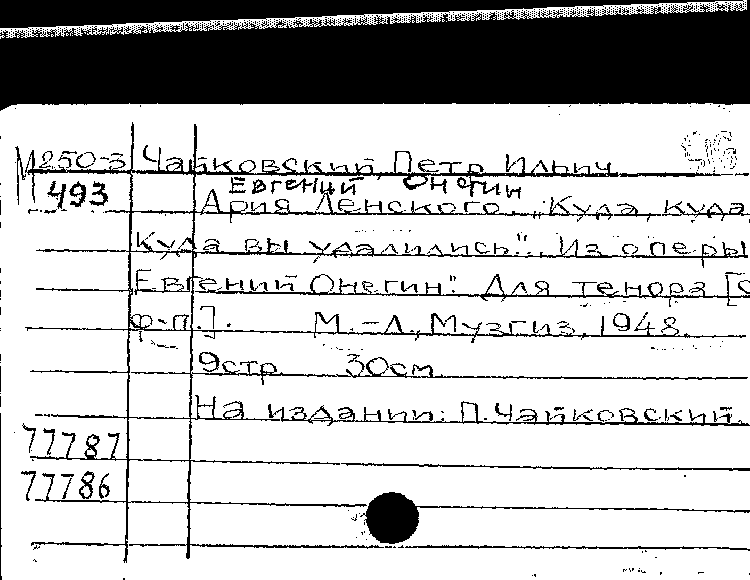 М250-3 Чайковский, Петр Ильич
493 Евгений Онегин
Ария Ленского. „Куда, куда,
куда вы удалились". Из оперы
Евгений Онегин". Для тенора [с
ф-п.]. М.-Л., Музгиз, 1948.
9стр 30см
На издании: П. Чайковский.
77787
77786